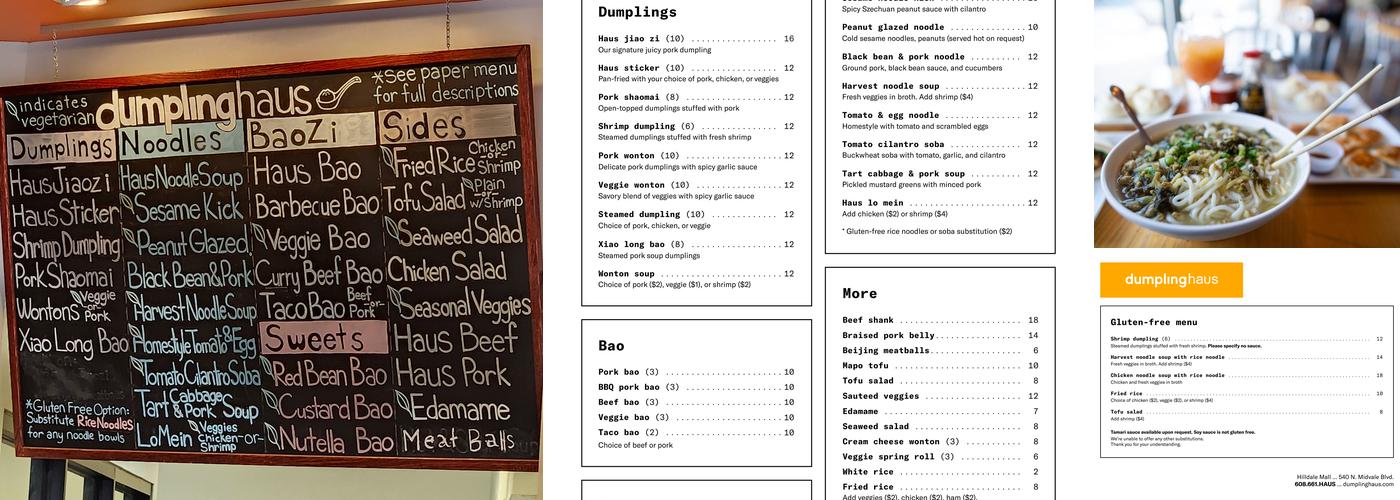 indicates
vegetarian
dumplinghaus
*See paper menu
for full descriptions
Dumplings
Haus Jiaozi
Haus Sticker
Shrimp Dumpling
Pork Shaomai
Wontons Veggie -or- Pork
Xiao Long Bao
*Gluten Free Option:
Substitute Rice Noodles
for any noodle bowls
Noodles
Haus Noodle Soup
Sesame Kick
Peanut Glazed
Black Bean & Pork
Harvest Noodle Soup
Homestyle Tomato & Egg
Tomato Cilantro Soba
Tart Cabbage & Pork Soup
Lo Mein Veggies Chicken -or- Shrimp
BaoZi
Haus Bao
Barbecue Bao
Veggie Bao
Curry Beef Bao
Taco Bao Beef -or- Pork
Sweets
Red Bean Bao
Custard Bao
Nutella Bao
Sides
Fried Rice Chicken -or- Shrimp
Tofu Salad Plain -or- w/Shrimp
Seaweed Salad
Chicken Salad
Seasonal Veggies
Haus Beef
Haus Pork
Edamame
Meat Balls
Dumplings
Haus jiao zi (10) ................ 16
Our signature juicy pork dumpling
Haus sticker (10) ................ 12
Pan-fried with your choice of pork, chicken, or veggies
Pork shaomai (8) ................. 12
Open-topped dumplings stuffed with pork
Shrimp dumpling (6) .............. 12
Steamed dumplings stuffed with fresh shrimp
Pork wonton (10) ................. 12
Delicate pork dumplings with spicy garlic sauce
Veggie wonton (10) ............... 12
Savory blend of veggies with spicy garlic sauce
Steamed dumpling (10) ............ 12
Choice of pork, chicken, or veggie
Xiao long bao (8) ................ 12
Steamed pork soup dumplings
Wonton soup ...................... 12
Choice of pork ($2), veggie ($1), or shrimp ($2)
Bao
Pork bao (3) ..................... 10
BBQ pork bao (3) ................. 10
Beef bao (3) ..................... 10
Veggie bao (3) ................... 10
Taco bao (2) ..................... 10
Choice of beef or pork
Spicy Szechuan peanut sauce with cilantro
Peanut glazed noodle ............. 10
Cold sesame noodles, peanuts (served hot on request)
Black bean & pork noodle ......... 12
Ground pork, black bean sauce, and cucumbers
Harvest noodle soup .............. 12
Fresh veggies in broth. Add shrimp ($4)
Tomato & egg noodle .............. 12
Homestyle with tomato and scrambled eggs
Tomato cilantro soba ............. 12
Buckwheat soba with tomato, garlic, and cilantro
Tart cabbage & pork soup ......... 12
Pickled mustard greens with minced pork
Haus lo mein ..................... 12
Add chicken ($2) or shrimp ($4)
* Gluten-free rice noodles or soba substitution ($2)
More
Beef shank ....................... 18
Braised pork belly ............... 14
Beijing meatballs ................ 6
Mapo tofu ........................ 10
Tofu salad ....................... 8
Sauteed veggies .................. 12
Edamame .......................... 7
Seaweed salad .................... 8
Cream cheese wonton (3) .......... 8
Veggie spring roll (3) ........... 6
White rice ....................... 2
Fried rice ....................... 8
Add veggies ($2), chicken ($2), ham ($2),
dumplinghaus
Gluten-free menu
Shrimp dumpling (6) .............. 12
Steamed dumplings stuffed with fresh shrimp. Please specify no sauce.
Harvest noodle soup with rice noodle ... 14
Fresh veggies in broth. Add shrimp ($4)
Chicken noodle soup with rice noodle ... 18
Chicken and fresh veggies in broth
Fried rice ....................... 10
Choice of chicken ($2), veggie ($2), or shrimp ($4)
Tofu salad ....................... 8
Add shrimp ($4)
Tamari sauce available upon request. Soy sauce is not gluten free.
We're unable to offer any other substitutions.
Thank you for your understanding.
Hilldale Mall ... 540 N. Midvale Blvd.
608.661.HAUS ... dumplinghaus.com